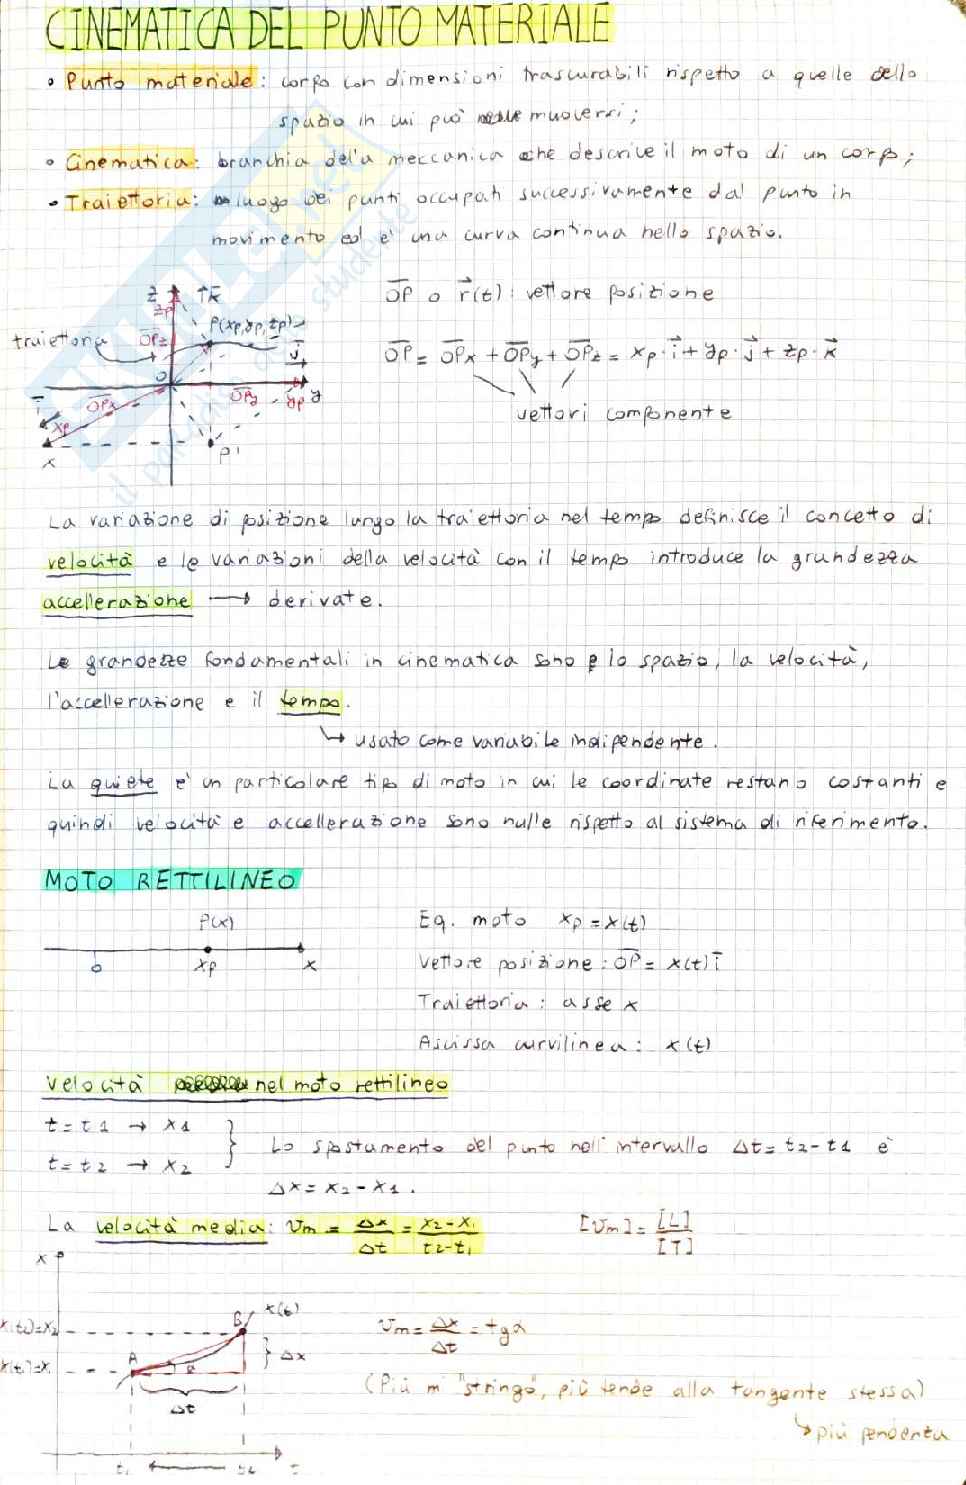 CINEMATICA DEL PUNTO MATERIALE
• Punto materiale: corpo con dimensioni trascurabili rispetto a quelle dello
spazio in cui può muoversi;
• Cinematica: branchia della meccanica che descrive il moto di un corpo;
• Traiettoria: luogo dei punti occupati successivamente dal punto in
movimento ed è una curva continua nello spazio.
z k⃗
zp
OPz P(xp,yp,zp)
traiettoria
j⃗
O
OPx OPy yp y
i⃗ xp
x P'
OP o r⃗(t): vettore posizione
OP = OPx + OPy + OPz = xp · i⃗ + yp · j⃗ + zp · k⃗
vettori componente
La variazione di posizione lungo la traiettoria nel tempo definisce il conceto di
velocità e le variazioni della velocità con il tempo introduce la grandezza
accellerazione → derivate.
Le grandezze fondamentali in cinematica sono lo spazio, la velocità,
l'accellerazione e il tempo.
↳ usato come variabile indipendente.
La quiete è un particolare tipo di moto in cui le coordinate restano costanti e
quindi velocità e accellerazione sono nulle rispetto al sistema di riferimento.
MOTO RETTILINEO
P(x)
O xp x
Eq. moto xp = x(t)
Vettore posizione: OP = x(t) i⃗
Traiettoria: asse x
Ascissa curvilinea: x(t)
Velocità nel moto rettilineo
t = t1 → x1
t = t2 → x2
} Lo spostamento del punto nell'intervallo Δt = t2 - t1 è
Δx = x2 - x1.
La velocità media: Vm = Δx/Δt = x2-x1/t2-t1 [Vm] = [L]/[T]
x
x(t2)=x2 B x(t)
A α } Δx
Δt
t1 t2 t
Vm = Δx/Δt = tgα
(Più mi "stringo", più tende alla tangente stessa)
↳ più pendenta
SKUOLA.net
il paradiso dello studente